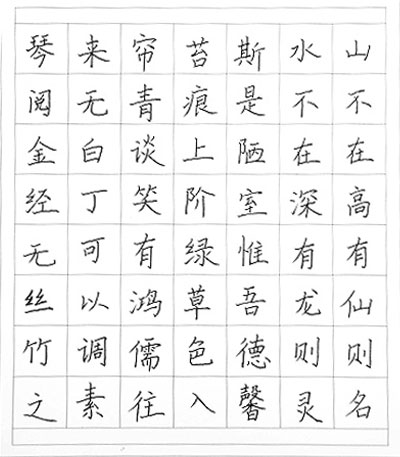 山不在高有仙则名
水不在深有龙则灵
斯是陋室惟吾德馨
苔痕上阶绿草色入
帘青谈笑有鸿儒往
来无白丁可以调素
琴阅金经无丝竹之